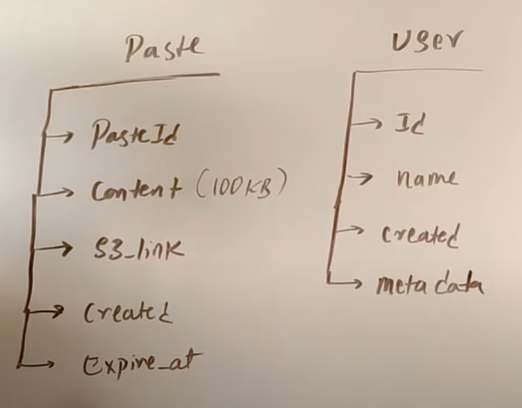 Paste
PasteId
Content (100KB)
S3_link
Created
Expire_at
User
Id
name
created
metadata